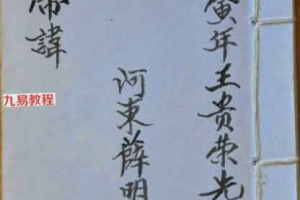 寅年王贵荣光
河東薛明
帝諱
九易教程